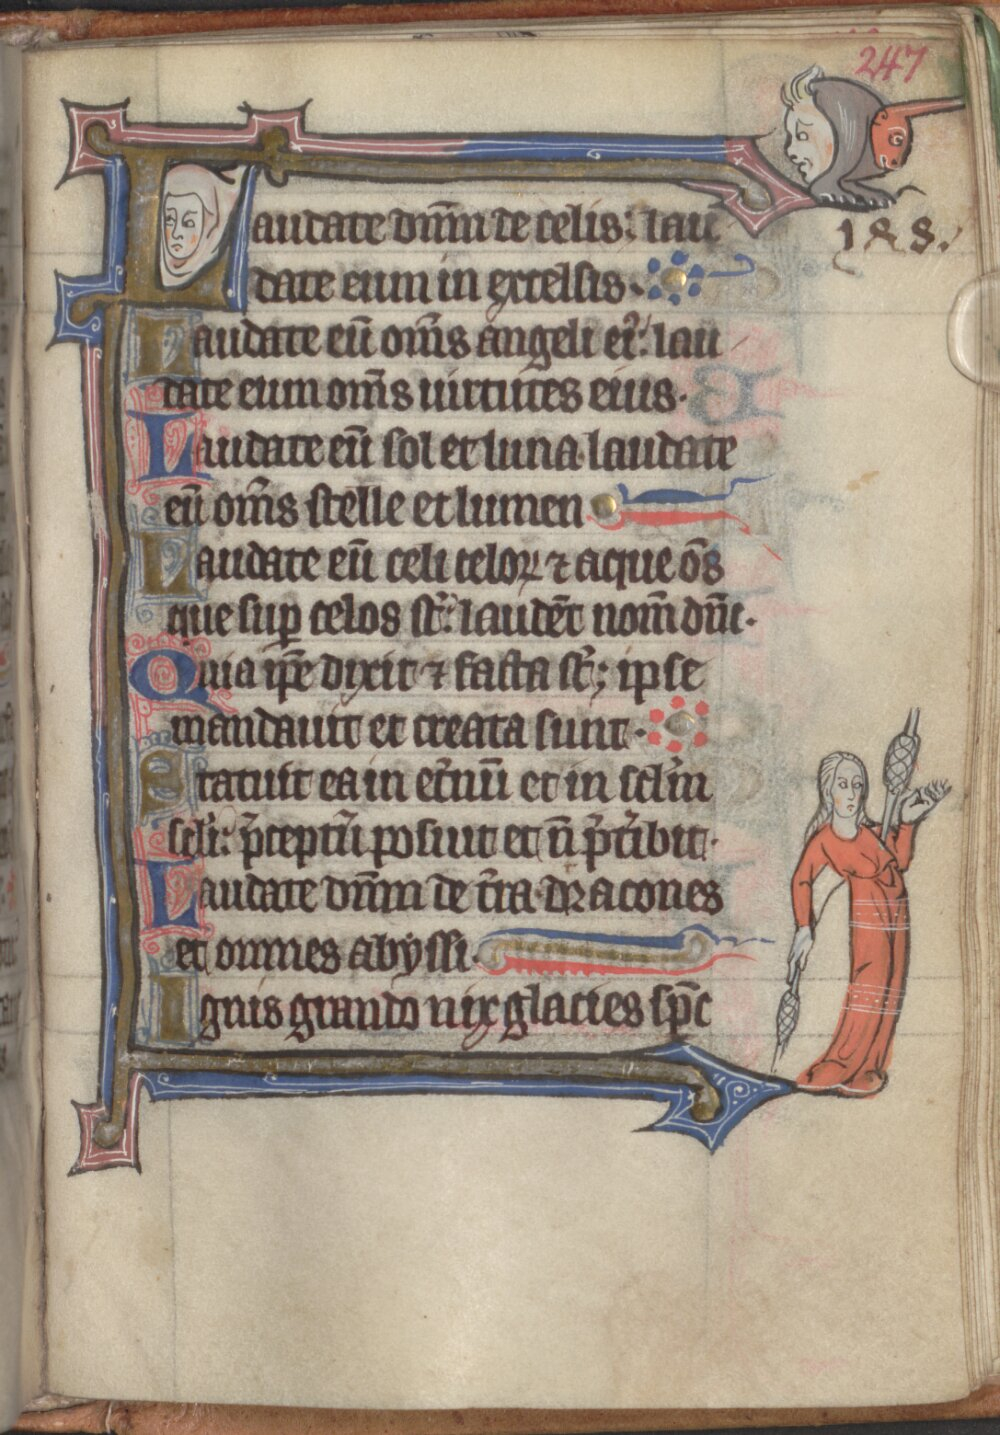 247
188.
Laudate dnm̄ de celis: lau
date eum in excelsis.
Laudate eū om̄s angeli ei9: lau
date eum om̄s uirtutes eius.
Laudate eū sol et luna laudate
eū om̄s stelle et lumen
Laudate eū celi celoꝝ ⁊ aque om̄s
que sup̄ celos st̄: laudēt nom̄ dn̄i.
Quia ip̄e dixit ⁊ facta st̄; ipse
mandauit et creata sunt.
Statuit ea in et̄nū et in scl̄m
scl̄i: p̄ceptū posuit et n̄ p̄t̄ibit.
Laudate dnm̄ de t̄ra dracones
et omnes abyssi.
Ignis grando nix glacies sp̄c